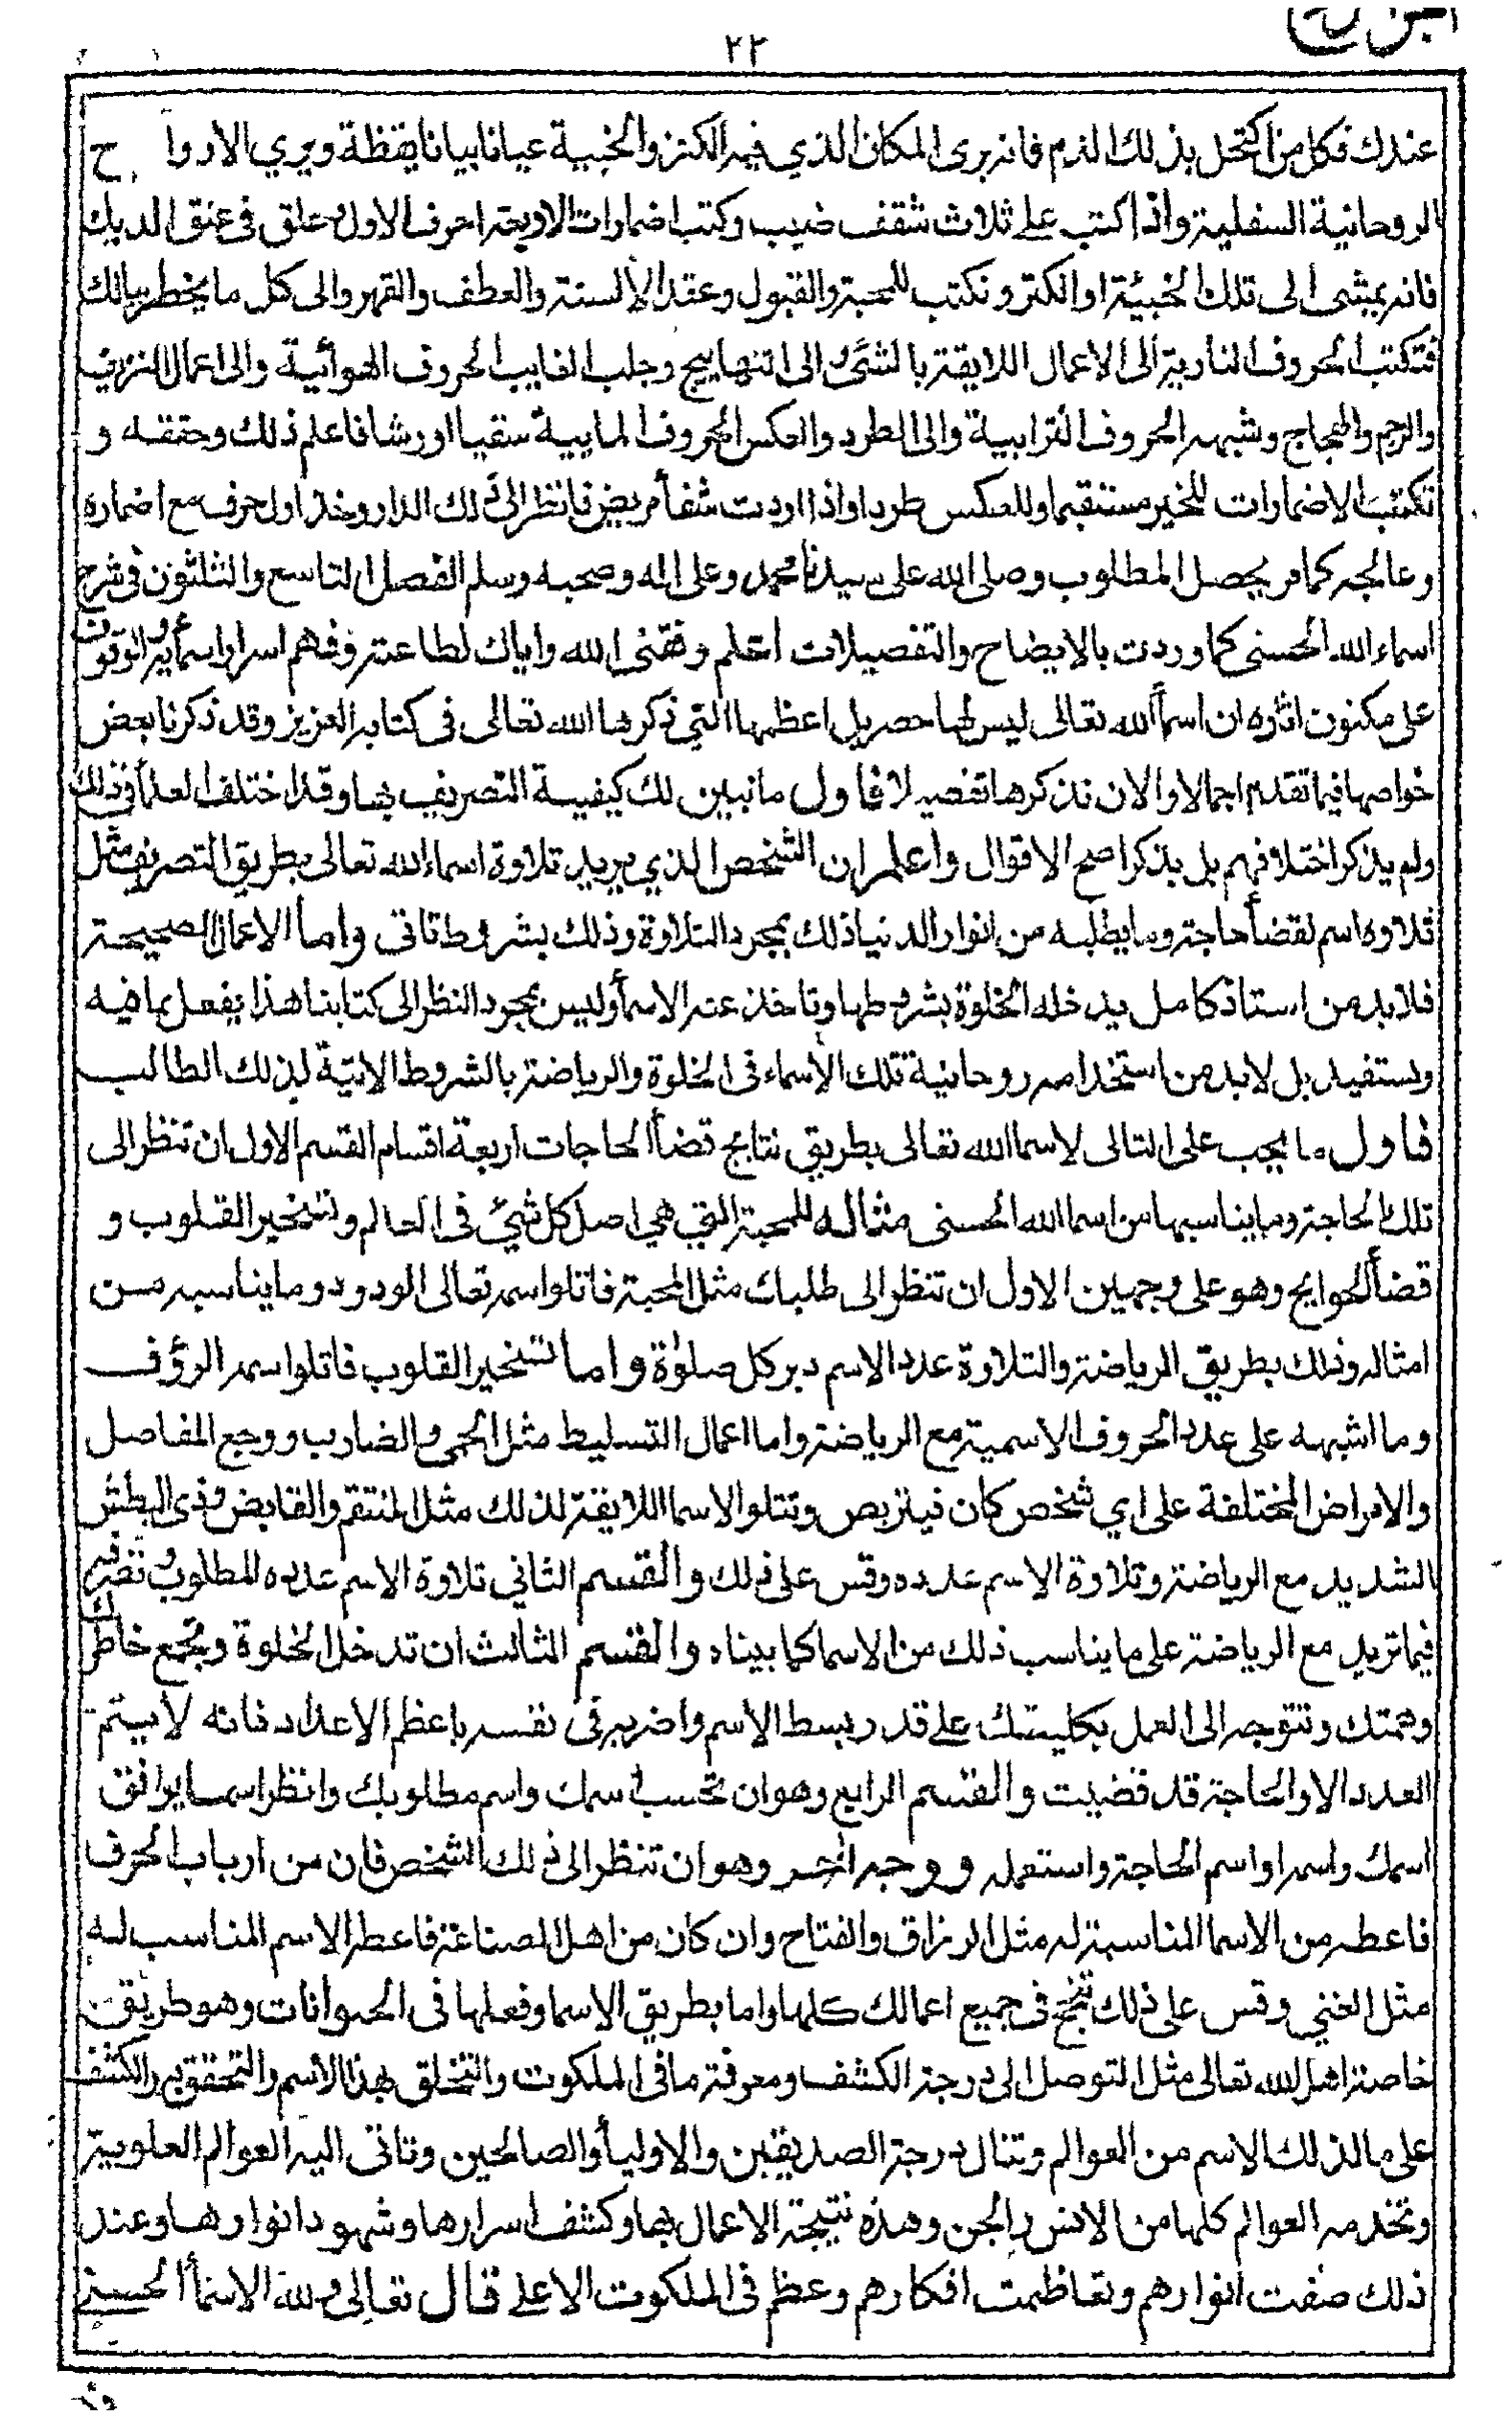 ٢٢
عندك فكل من اكتحل بذلك الدم فانه يرى المكان الذي فيه الكنز والخبية عيانا بيانا يقظة ويري الاروا ح
الروحانية السفلية واذا كتب على ثلاث شقف ضيب وكتب اضمارات الاربعة احرف الاول وعلق فى عنق الديك
فانه يمشى الى تلك الخبيئة او الكنز و نكتب للمحبة والقبول وعقد الألسنة والعطف والقهر والى كل ما يخطر ببالك
فتكتب الحروف النارية الى الاعمال اللايقة بالشئ الى التهاييج وجلب الغايب الحروف الهوائية والى اعمال النزيف
والرجم والهجاج وشبهه الحروف الترابية والى الطرد والعكس الحروف المايية سقيا او رشا فاعلم ذلك وحققه و
تكتب الاضمارات للخير مستقيما وللعكس طردا واذا اردت شفأ مريض فانظر الى ذلك الدار وخذ اول حرف مع اضماره
وعالجه كما مر يحصل المطلوب وصلى الله على سيدنا محمد وعلى اله وصحبه وسلم الفصل التاسع والثلثون فى شرح
اسماء الله الحسنى كما وردت بالايضاح والتفصيلات اعلم وفقنى الله واياك لطاعته وفهم اسرار اسمأيه والوقوف
على مكنون اثاره ان اسمأ الله تعالى ليس لها حصر بل اعظمها التي ذكرها الله تعالى فى كتابه العزيز وقد ذكرنا بعض
خواصها فيما تقدم اجمالا والان نذكرها تفصيلا فاول ما نبين لك كيفية التصريف بها وقد اختلف العلمأ فى ذلك
ولم يذكر اختلافهم بل يذكر اصح الاقوال واعلم ان الشخص الذي يريد تلاوة اسماء الله تعالى بطريق التصريف مثل
تلاوة اسم لقضأ حاجة وما يطلبه من انوار الدنيا ذلك بمجرد التلاوة وذلك بشروط تاتى واما الاعمال الصحيحة
فلابد من استاذ كامل يدخله الخلوة بشروطها وتاخذ عنه الاسمأ وليس بمجرد النظر الى كتابنا هذا يفعل بما فيه
ويستفيد بل لابد من استخدامه روحانية تلك الأسماء فى الخلوة والرياضة بالشروط الاتية لذلك الطالب
فاول ما يجب على التالى لاسما الله تعالى بطريق نتايج قضأ الحاجات اربعة اقسام القسم الاول ان تنظر الى
تلك الحاجة وما يناسبها من اسما الله الحسنى مثاله للمحبة التي هي اصل كل شئ فى العالم وتسخير القلوب و
قضأ الحوايج وهو على وجهين الاول ان تنظر الى طلبك مثل المحبة فاتلوا اسمه تعالى الودود وما يناسبه من
امثاله وذلك بطريق الرياضة والتلاوة عدد الاسم دبر كل صلوة واما تسخير القلوب فاتلوا اسمه الرؤف
وما اشبهه على عدد الحروف الاسمية مع الرياضة واما اعمال التسليط مثل الحمى والضارب ووجع المفاصل
والامراض المختلفة على اي شخص كان فيتربص وتتلو الاسما اللايقة لذلك مثل المنتقم والقابض وذى البطش
الشديد مع الرياضة وتلاوة الاسم عدده وقس على ذلك والقسم الثاني تلاوة الاسم عدده للمطلوب وتصرفه
فيما تريد مع الرياضة على ما يناسب ذلك من الاسما كما بيناه والقسم الثالث ان تدخل الخلوة وتجمع خاطرك
وهمتك وتتوجه الى العمل بكليتك على قدر بسط الاسم واضربه فى نفسه باعظم الاعداد فانه لا يستم
العدد الا والحاجة قد قضيت والقسم الرابع وهو ان تحسب اسمك واسم مطلوبك وانظر اسما يوافق
اسمك واسمه او اسم الحاجة واستعمله ووجه اخر وهو ان تنظر الى ذلك الشخص فان من ارباب الحرف
فاعطه من الاسما المناسبة له مثل الرزاق والفتاح وان كان من اهل الصناعة فاعطه الاسم المناسب له
مثل الغني وقس على ذلك تنجح فى جميع اعمالك كلها واما بطريق الاسما وفعلها فى الحيوانات وهو طريق
خاصة اهل الله تعالى مثل التوصل الى درجة الكشف ومعرفة ما فى الملكوت والتخلق بهذا الاسم والتحقق به والكشف
على ما لذلك الاسم من العوالم وتنال درجة الصديقين والاوليأ والصالحين وتاتى اليه العوالم العلوية
وتخدمه العوالم كلها من الانس والجن وهذه نتيجة الاعمال بها وكشف اسرارها وشهود انوارها وعند
ذلك صفت انوارهم وتعاظمت افكارهم وعظم فى الملكوت الاعلى قال تعالى ولله الاسمأ الحسنى